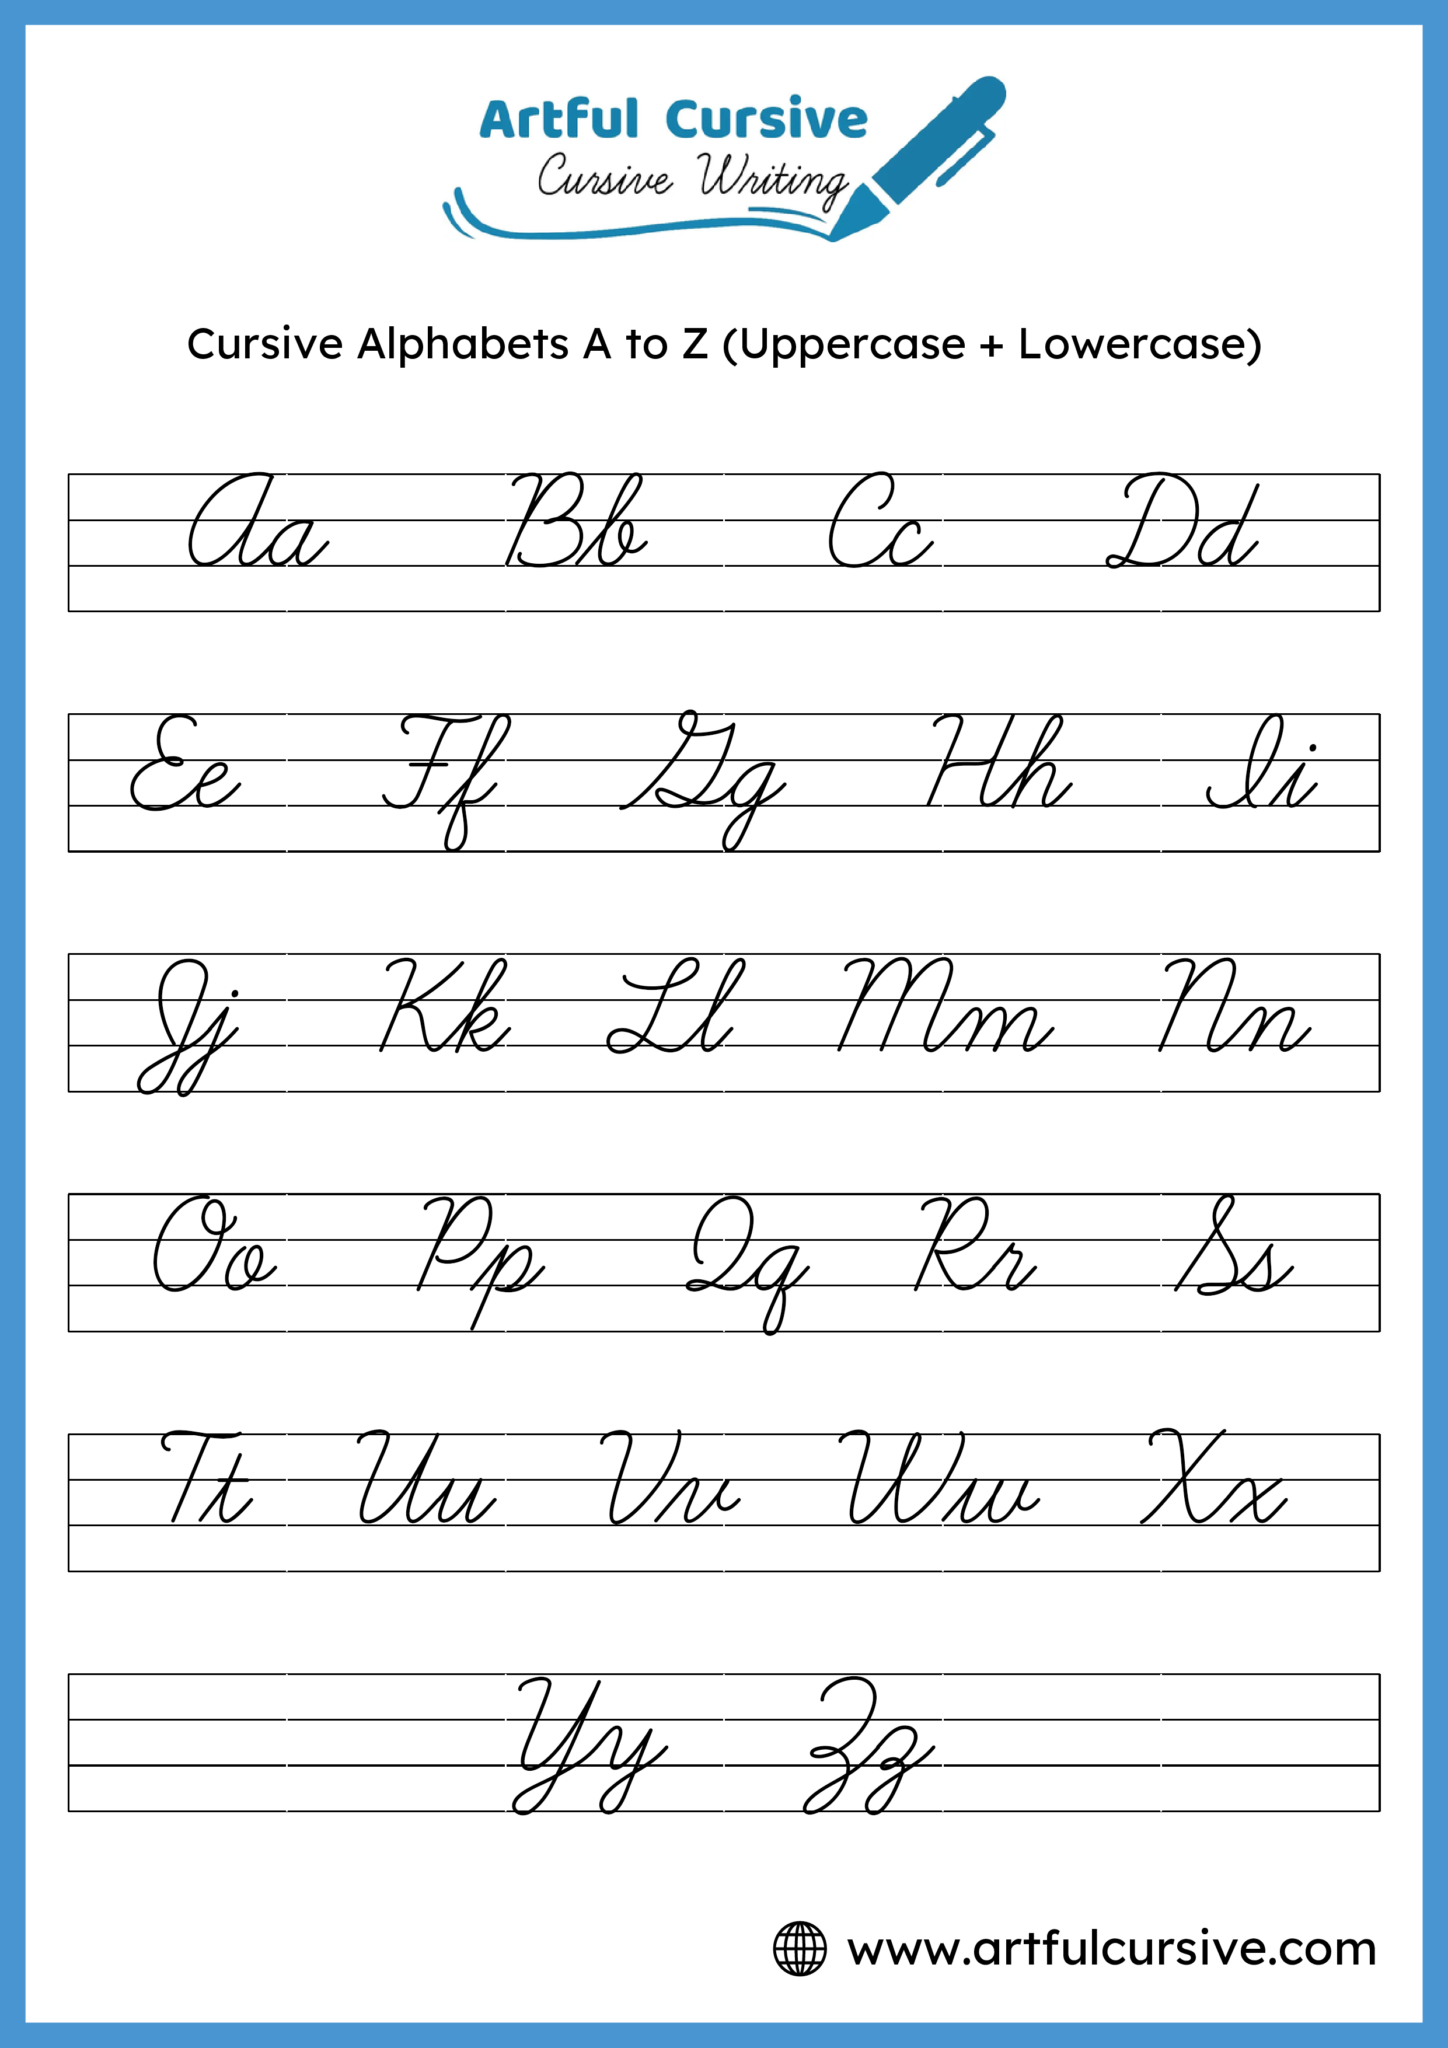 Artful Cursive
Cursive Writing
Cursive Alphabets A to Z (Uppercase + Lowercase)
Aa Bb Cc Dd
Ee Ff Gg Hh Ii
Jj Kk Ll Mm Nn
Oo Pp Qq Rr Ss
Tt Uu Vv Ww Xx
Yy Zz
www.artfulcursive.com